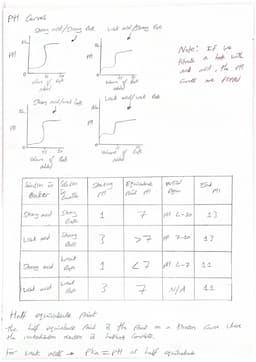 PH Curves
Strong acid/Strong Base
Weak acid/Strong Base
Note: If we
titrate a base with
and acid, the pH
curves are flipped
PH
PH
Volume of Base
added
Volume of Base
added
Strong acid/weak base
Weak acid/weak Base
PH
PH
Volume of Base
added
Volume of Base
added
Solution in Beaker
Solution in Burette
Starting pH
Equivalence Point pH
End pH
Strong acid Strong Base 1 7 13
Weak acid Strong Base 3 >7 pH 7-10 13
Strong acid Weak Base 1 <7 11
Weak acid Weak Base 3 7 N/A 11
Half equivalence point
the half equivalence point is the point on a titration curve where
the neutralisation reaction is halfway complete.
For weak acids → Pka = pH at half equivalence